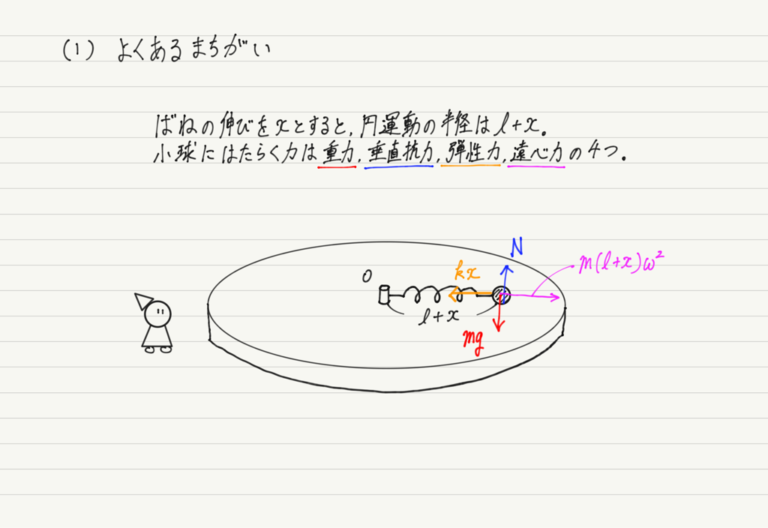 (1) よくあるまちがい
ばねの伸びをxとすると，円運動の半径はl+x．
小球にはたらく力は重力，垂直抗力，弾性力，遠心力の4つ．
N
m(l+x)ω²
O
kx
l+x
mg